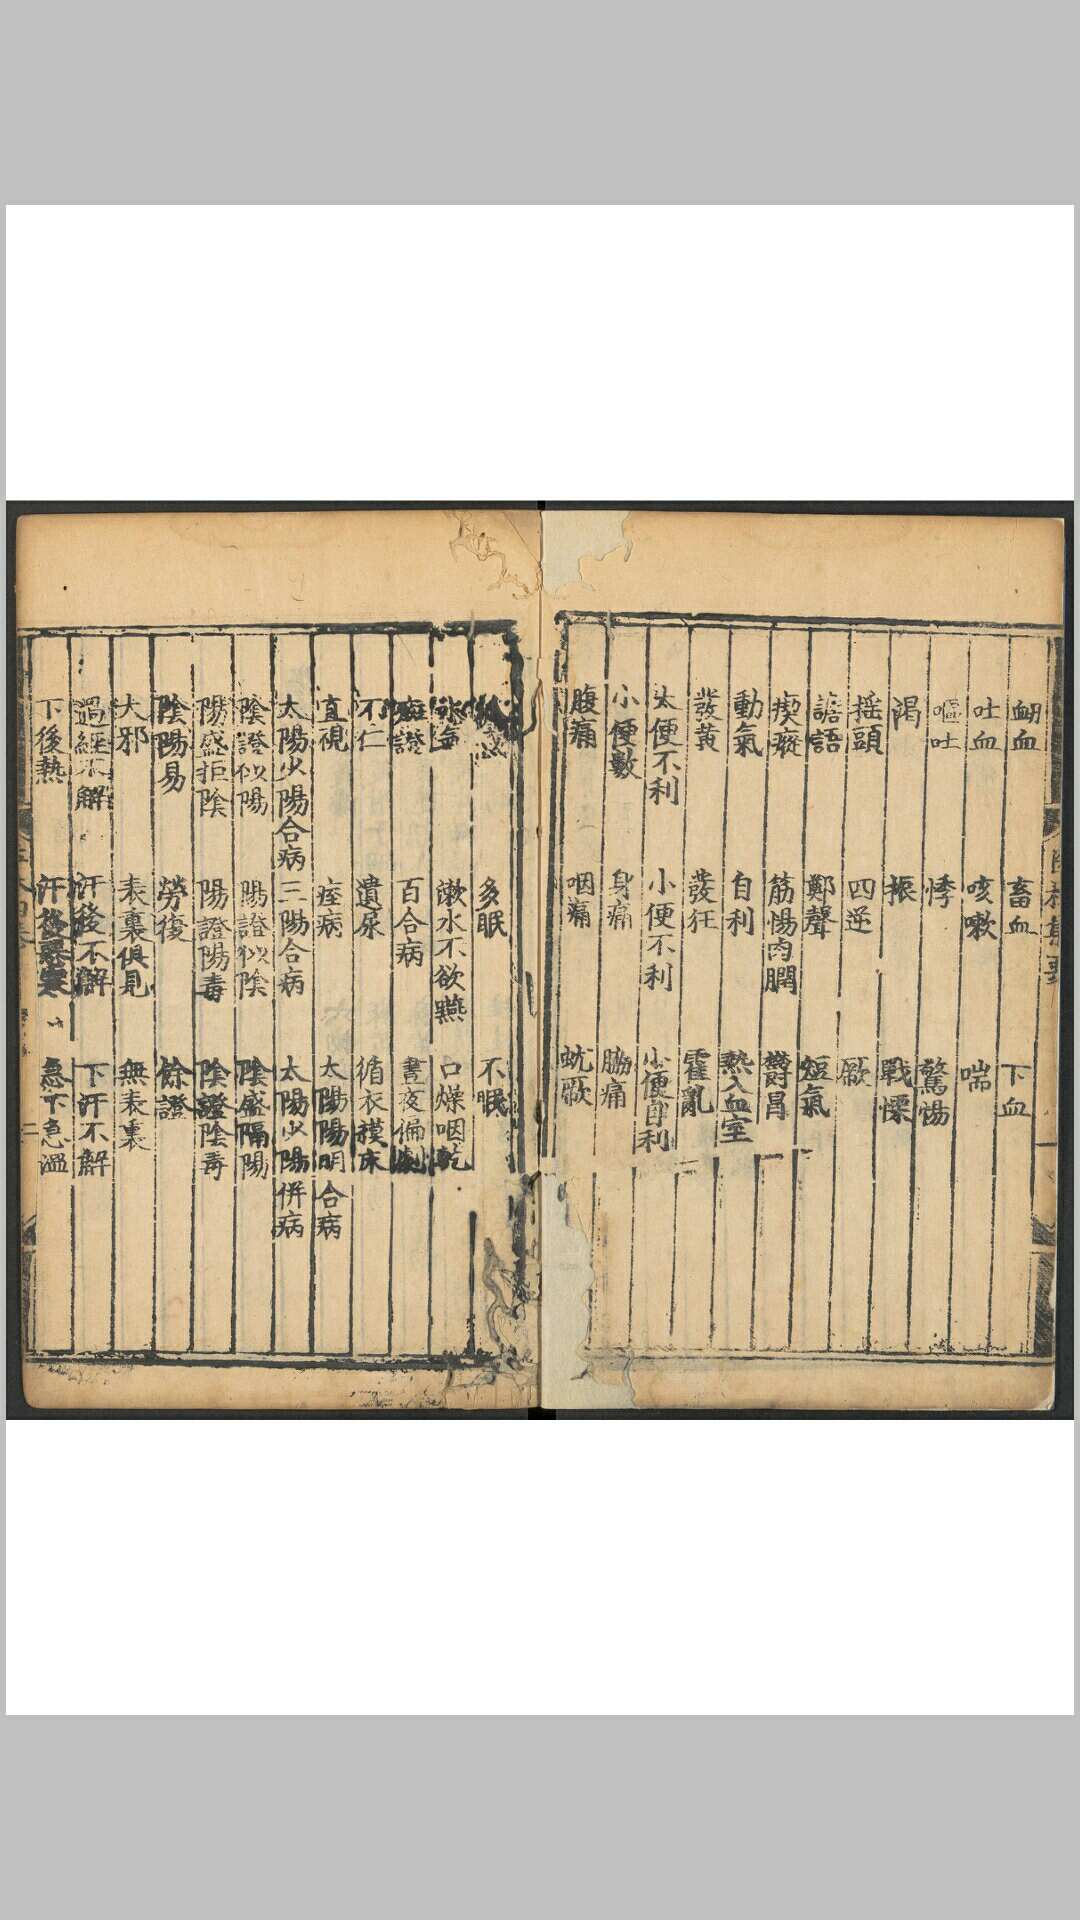 衄血 畜血 下血
吐血 咳嗽 喘
嘔吐 悸 驚惕
渴 振 戰慄
揺頭 四逆 厥
譫語 鄭聲 短氣
瘈瘲 筋惕肉瞤 欝冒
動氣 自利 熱入血室
發黄 發狂 霍亂
大便不利 小便不利 小便自利
小便數 身痛 脇痛
腹痛 咽痛 蚘厥
多眠 不眠
漱水不欲嚥 口燥咽乾
斑證 百合病 晝夜偏劇
不仁 遺尿 循衣摸床
直視 痓病 太陽陽明合病
太陽少陽合病 三陽合病 太陽少陽併病
陰證似陽 陽證似陰 陰盛隔陽
陽盛拒陰 陽證陽毒 陰證陰毒
陰陽易 勞復 餘證
大邪 表裏俱見 無表裏
過經不解 汗後不解 下汗不解
下後熱 汗後惡寒 急下急温